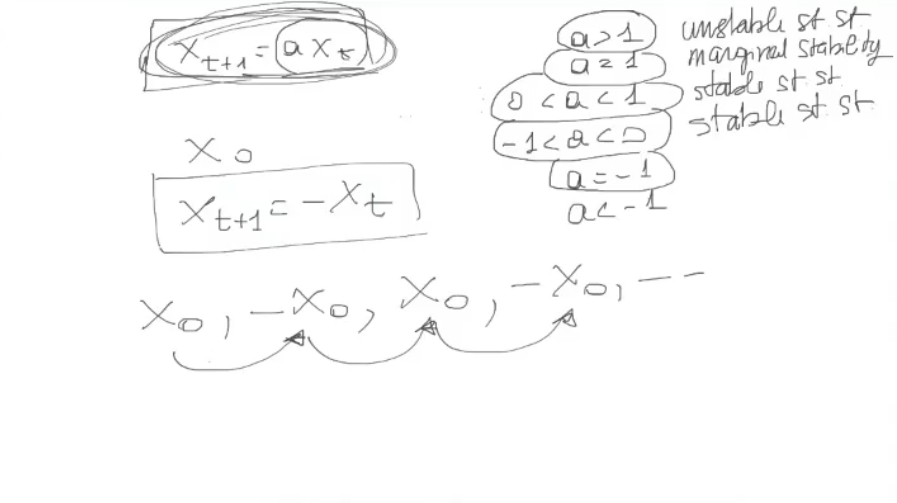 x_{t+1} = a x_t
a > 1 unstable st st
a = 1 marginal stability
0 < a < 1 stable st. st.
-1 < a < 0 stable st. st.
a = -1
a < -1
x_0
x_{t+1} = -x_t
x_0, -x_0, x_0, -x_0, ---